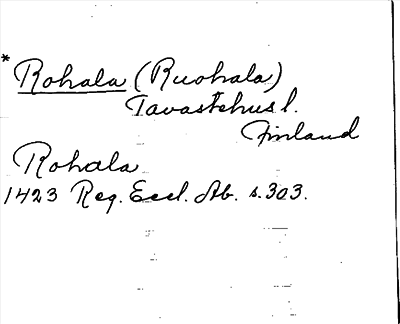 * Rohala (Ruohala)
Tavastehus l.
Finland
Rohala
1423 Reg. Eccl. Ab. s. 303.